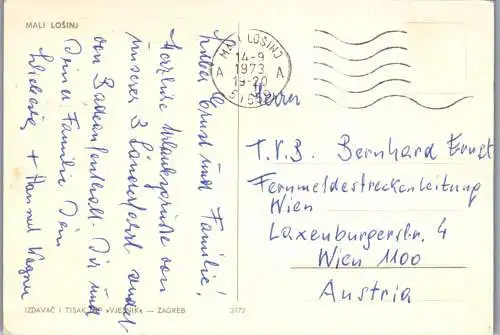 MALI LOŠINJ
Lieber Ernst und Familie!
Herzliche Urlaubsgrüße von
unserer 3 Länderfahrt und
von Badeaufenthalt. Dir und
Deiner Familie Dein
+ Hannes Wagner
MALI LOŠINJ
14-9
A 1973 A
19-20
51550
Herrn
T.R.B. Bernhard Ernst
Fernmeldestreckenleitung
Wien
Laxenburgerstr. 4
Wien 1100
Austria
IZDAVAČ I TISAK »VJESNIK« — ZAGREB
3172